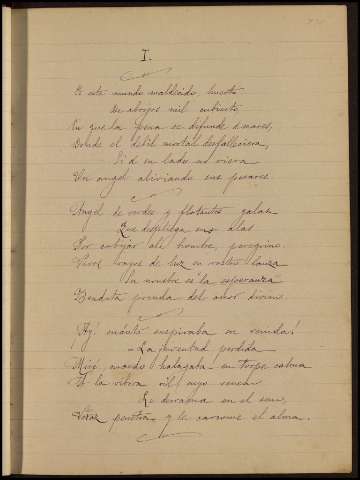 I.
Es este mundo maldecido, huerto
De abrojos mil cubierto
En que la pena se difunde á mares,
Donde el débil mortal desfalleciera,
Si á su lado no viera
Un angel aliviando sus pesares.
Angel de verdes y flotantes galas
Que despliega sus alas
Por cobijar al hombre, peregrino.
Vivos rayos de luz su rostro lanza
Su nombre es la esperanza
Bendita prenda del amor divino.
Ay! cuánto suspiraba su venida!
La juventud perdida
Miré, cuando halagaba en torpe calma
Á la vibora vil, cuyo veneno
Se derrama en el seno,
penetra y le carcome el alma.